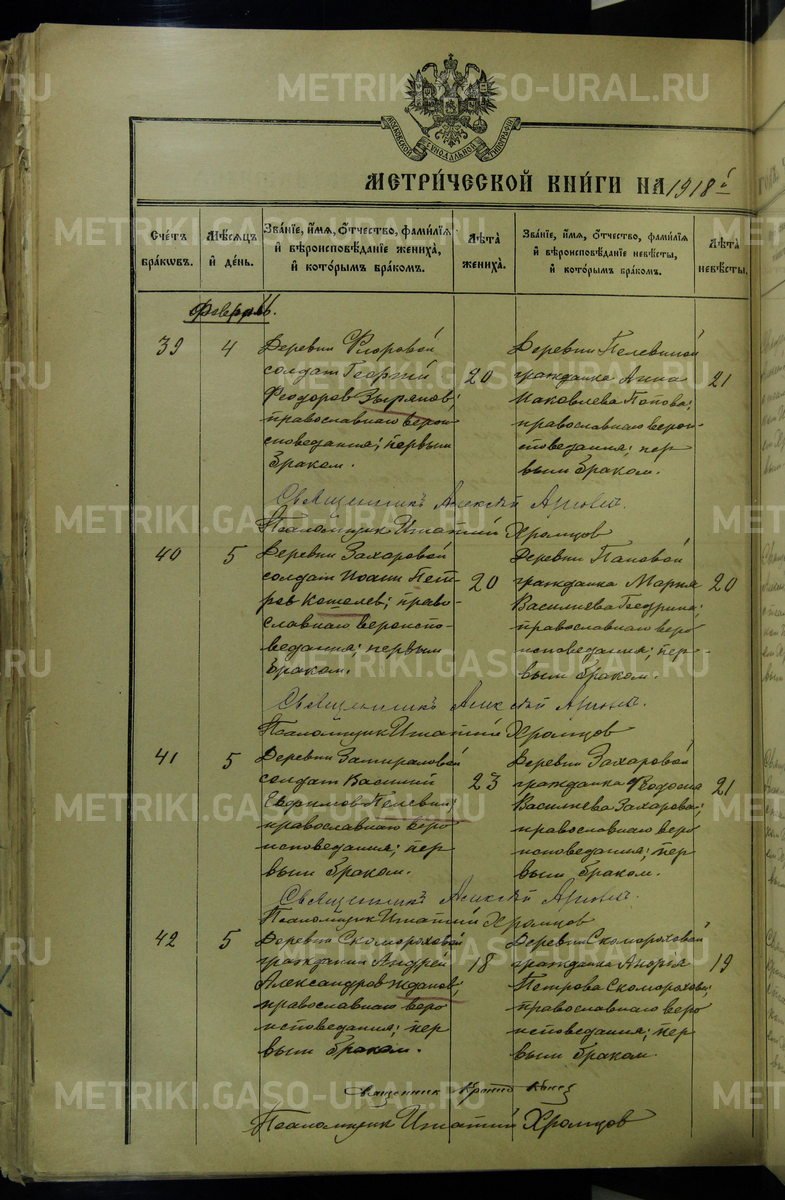 METRIKI.GASO-URAL.RU
МОСКОВСКОЙ СѴНОДАЛЬНОЙ ТИПОГРАФІИ
МЕТРИ́ЧЕСКОЙ КНИ́ГИ НА 1918 й
Сче́тъ бра́кѡвъ.
Мѣ́сѧцъ и҆ де́нь.
Зва́нїе, и҆́мѧ, ѻ҆́тчество, фами́лїѧ и҆ вѣроисповѣ́данїе жениха̀, и҆ кото́рымъ бра́комъ.
Лѣ́та жениха̀.
Зва́нїе, и҆́мѧ, ѻ҆́тчество, фами́лїѧ и҆ вѣроисповѣ́данїе невѣ́сты, и҆ кото́рымъ бра́комъ.
Лѣ́та невѣ́сты.
Февраль.
39
4
Деревни Флоровой
солдат Георгий
Феодоров Зырянов;
православнаго верои
споведания; первым
браком.
20
Деревни Пелевиной
гражданка Анна
Иаковлева Попова;
православнаго верои-
споведания; пер
вым браком.
21
Священникъ Алексѣй
Псаломщик Игнатий Хромцов
40
5
Деревни Захаровой
солдат Иоанн Пет-
ров Кошелев; право-
славнаго вероиспо-
ведания; первым
браком.
20
Деревни Паповой
гражданка Мария
Василиева
православнаго веро
исповедания; пер-
вым браком.
20
Священникъ Алексѣй
Псаломщик Игнатий Хромцов
41
5
Деревни
солдат Василий
Евфимов Пелевин;
православнаго веро
исповедания; пер
вым браком.
23
Деревни Захаровой
гражданка Феодосия
Василиева Захарова;
православнаго веро
исповедания; пер
вым браком.
21
Священникъ Алексѣй
Псаломщик Игнатий Хромцов
42
5
Деревни Скомороховой
гражданин Андрей
Александров Жданов;
православнаго веро
исповедания; пер
вым браком.
18
Деревни Скомороховой
гражданка
Петрова Скоморохова;
православнаго веро
исповедания; пер
вым браком.
19
Священник
Псаломщик Игнатий Хромцов